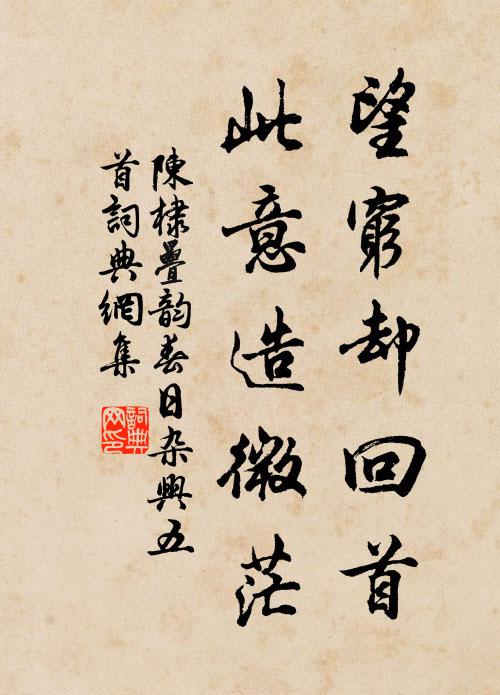 望窮却回首
此意造微茫
陳棣疊韵春日杂興五
首詞典網集
詞典网印